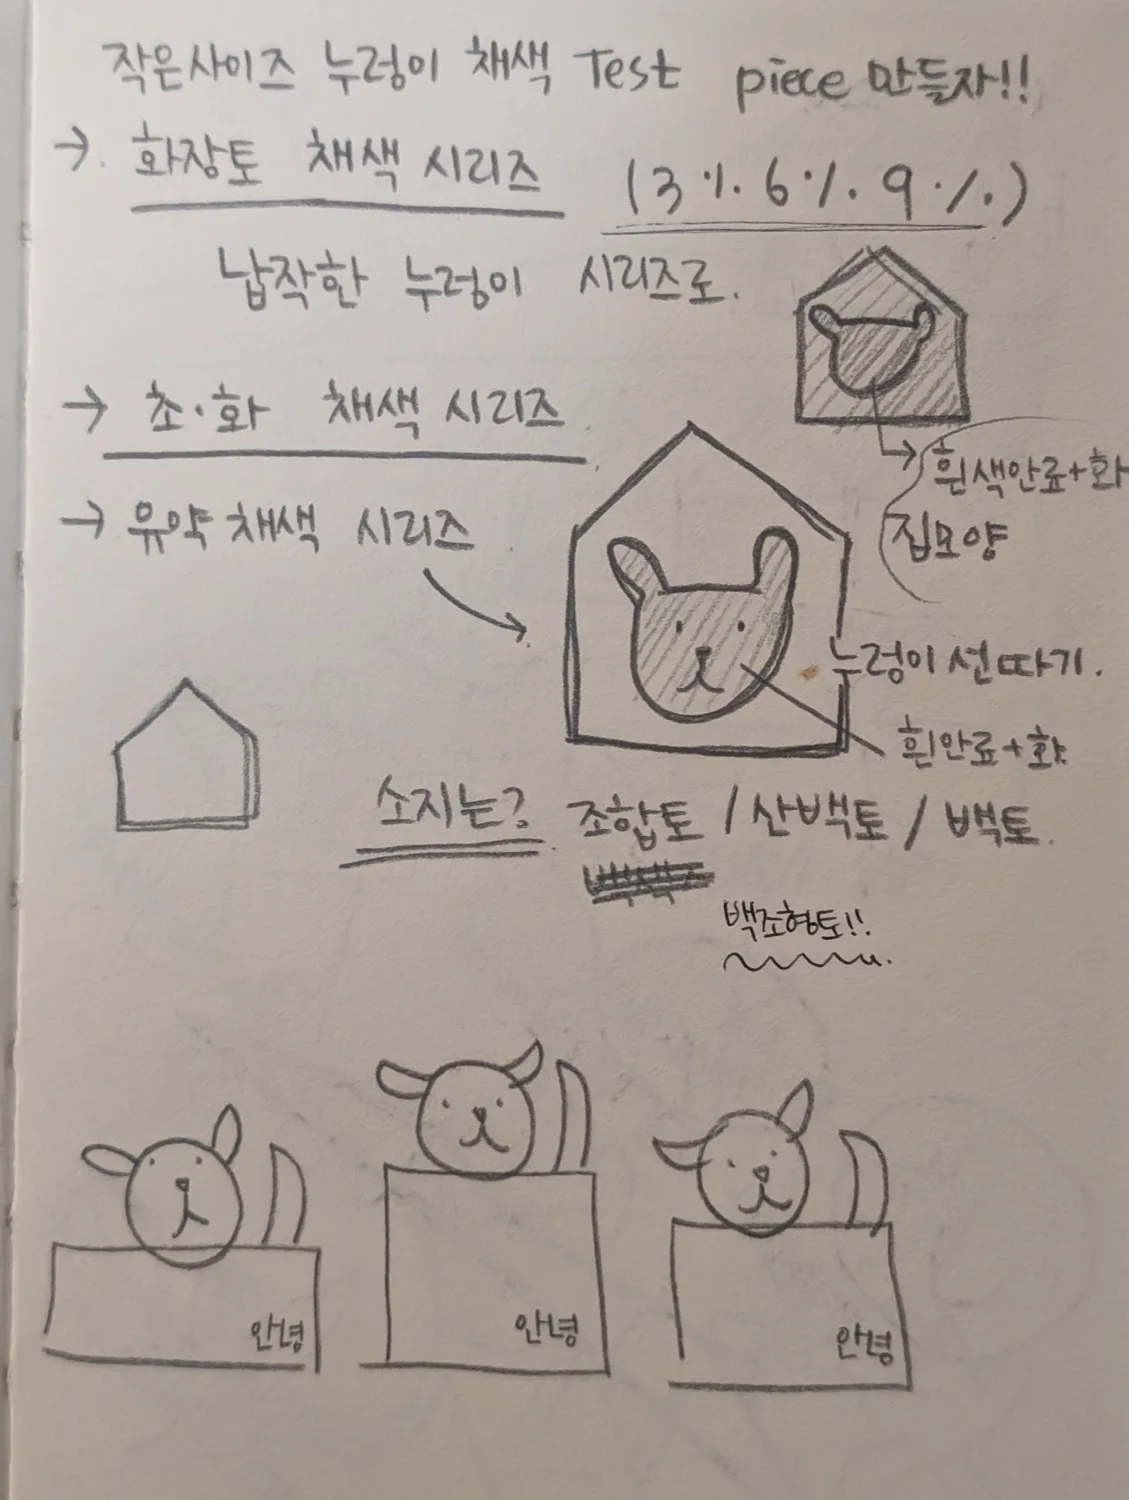 작은사이즈 누렁이 채색 Test piece 만들자!!
→. 화장토 채색 시리즈 (3%. 6%. 9%.)
납작한 누렁이 시리즈로.
→ 초·화 채색 시리즈
→ 흰색안료+화
집모양
→ 유약 채색 시리즈
누렁이 선따기.
흰안료+화
소지는? 조합토 / 산백토 / 백토.
백조형토!!
안녕
안녕
안녕